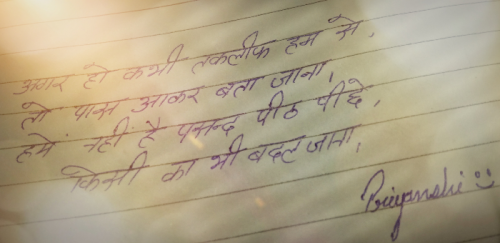 अगर हो कभी तकलीफ हम से,
तो पास आकर बता जाना,
हमें नहीं है पसन्द पीठ पीछे,
किसी का भी बदल जाना,
Priyanshi